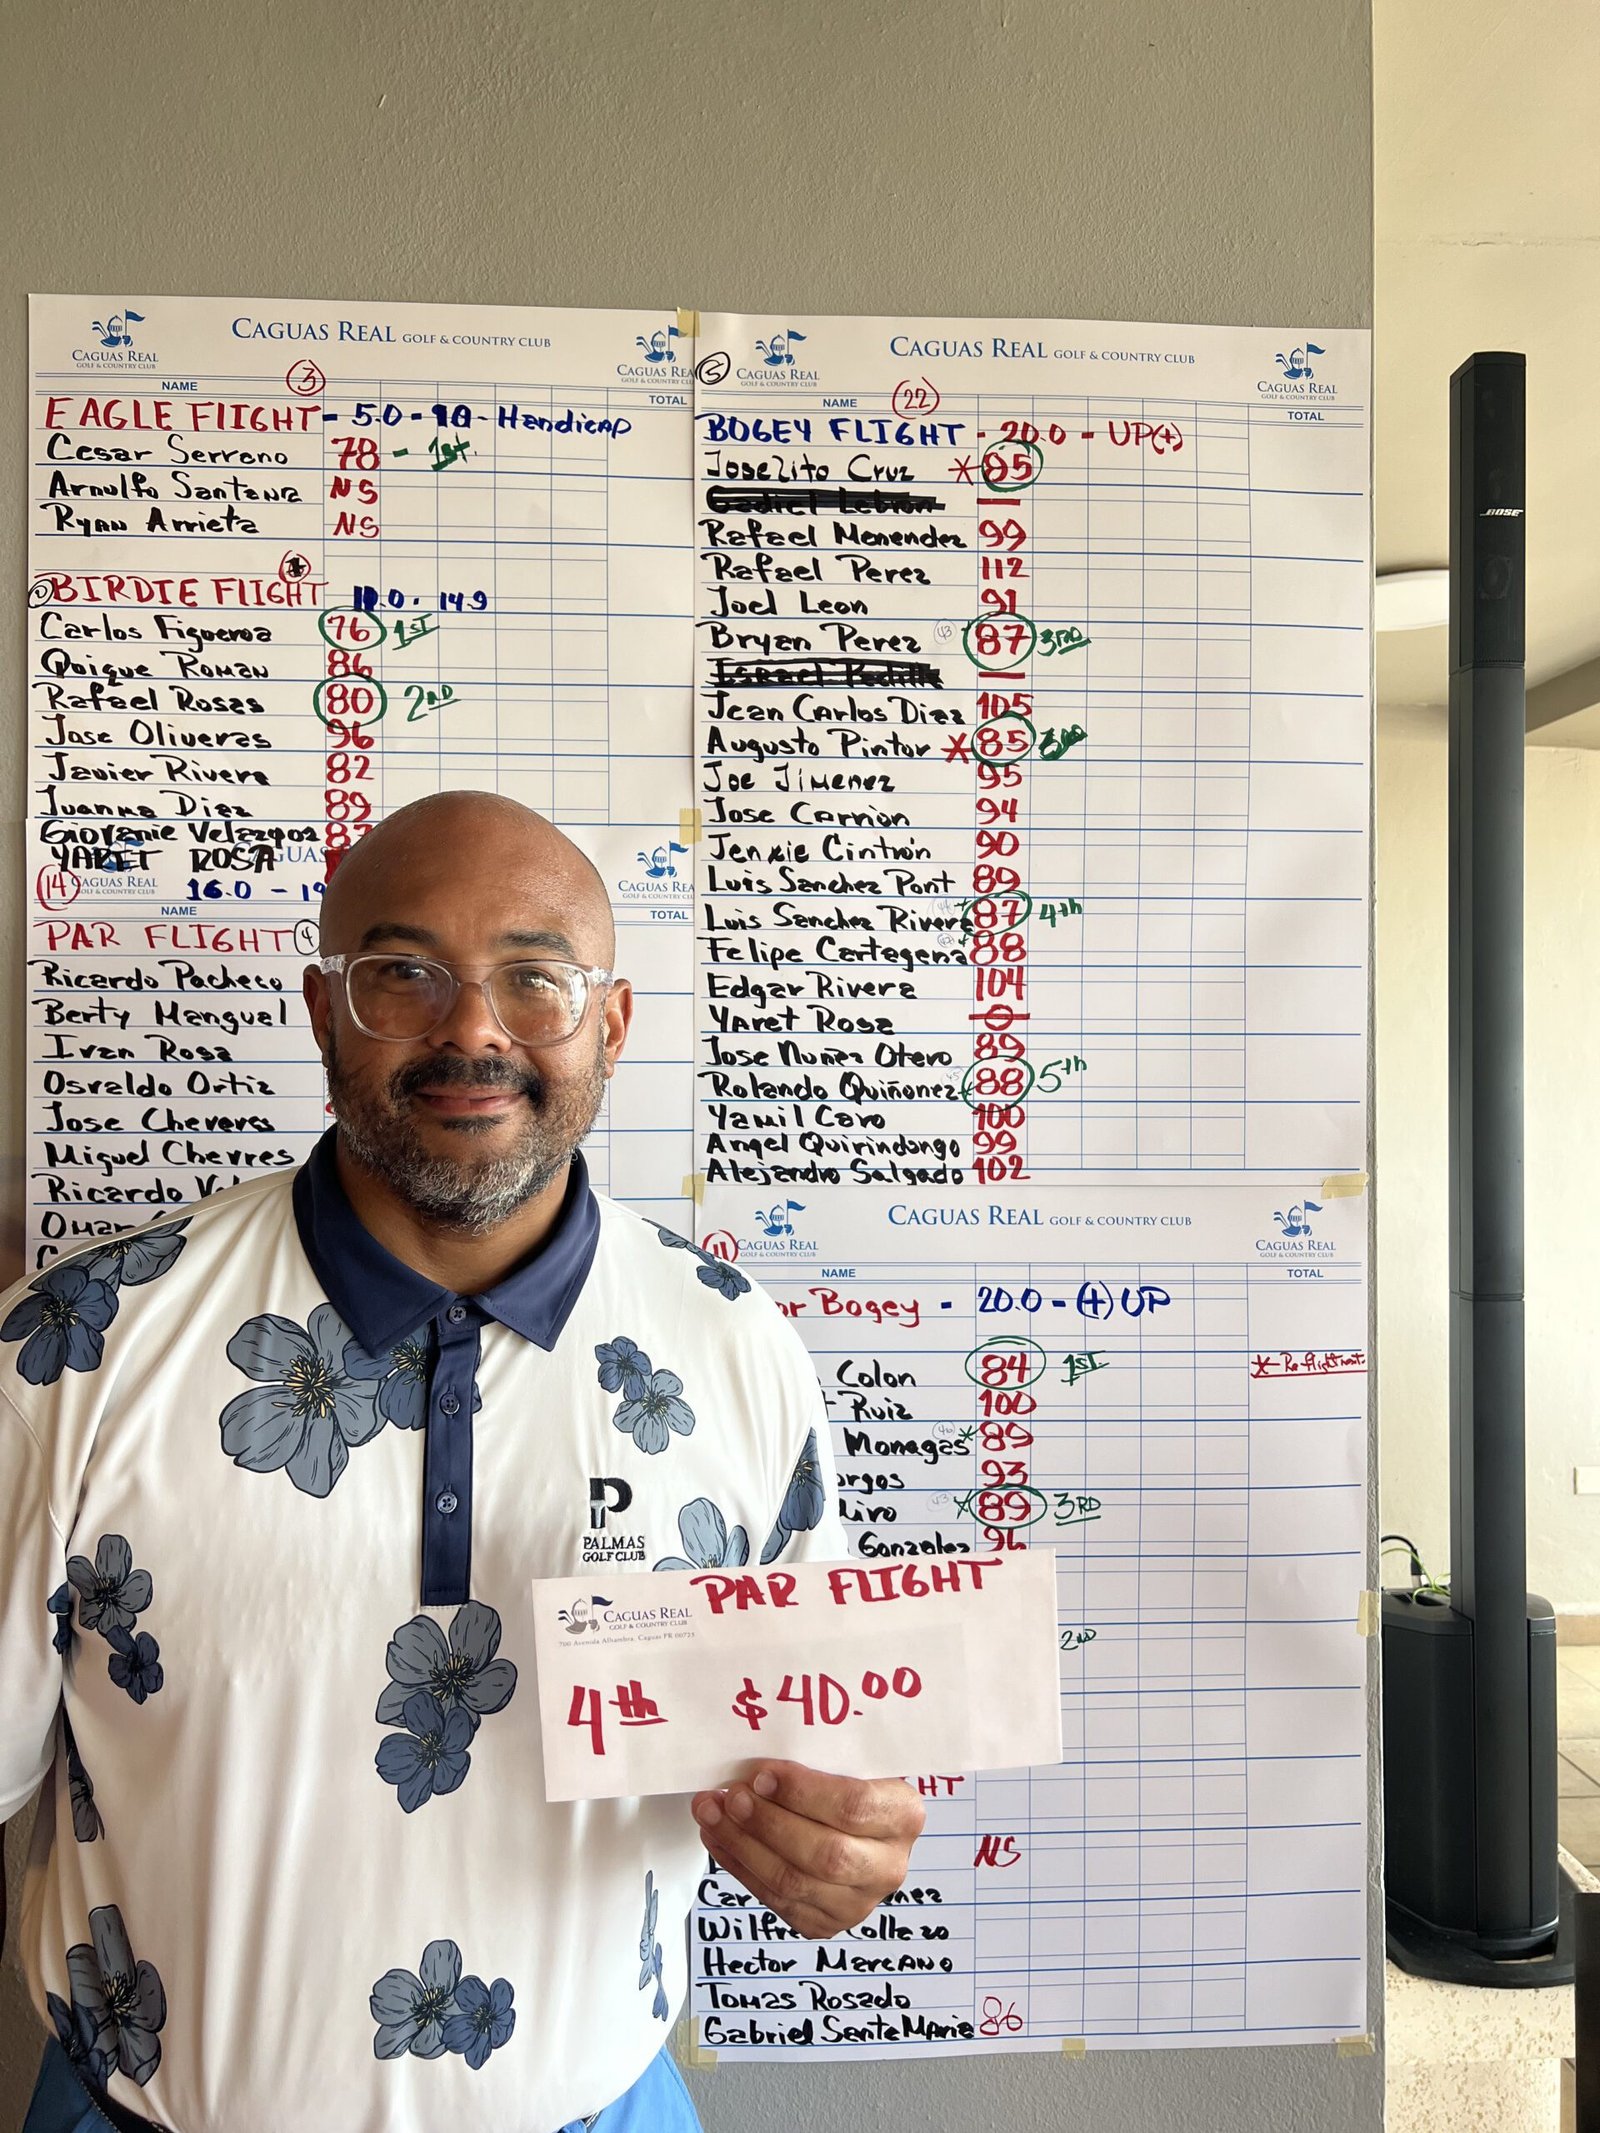 CAGUAS REAL GOLF & COUNTRY CLUB
CAGUAS REAL
GOLF & COUNTRY CLUB
3
NAME
TOTAL
EAGLE FLIGHT - 5.0 - 10 - Handicap
Cesar Serrano 78 - 1st.
Arnulfo Santana NS
Ryan Arrieta NS
BIRDIE FLIGHT 11.0 - 14.9
Carlos Figueroa 76 1ST
Quique Roman 86
Rafael Rosas 80 2ND
Jose Oliveras 96
Javier Rivera 82
Juanma Diaz 89
Giovanie Velazquez 87
YARET ROSA
14
CAGUAS REAL
GOLF & COUNTRY CLUB
16.0 - 19
NAME
TOTAL
PAR FLIGHT 4
Ricardo Pacheco
Berty Mangual
Ivan Rosa
Osvaldo Ortiz
Jose Cheveres
Miguel Chevres
Ricardo
Omar
5
CAGUAS REAL
GOLF & COUNTRY CLUB
CAGUAS REAL GOLF & COUNTRY CLUB
CAGUAS REAL
GOLF & COUNTRY CLUB
NAME
22
TOTAL
BOGEY FLIGHT - 20.0 - UP(+)
Joselito Cruz *85
Rafael Menendez 99
Rafael Perez 112
Joel Leon 91
Bryan Perez 43 87 3RD
Jean Carlos Diaz 105
Augusto Pintor *85
Joe Jimenez 95
Jose Carrion 94
Jenxie Cintrón 90
Luis Sanchez Pont 89
Luis Sanchez Rivera 87 4th
Felipe Cartagena 88
Edgar Rivera 104
Yaret Rosa 0
Jose Nuñez Otero 89
Rolando Quiñonez 88 5th
Yamil Caro 100
Angel Quirindongo 99
Alejandro Salgado 102
11
CAGUAS REAL
GOLF & COUNTRY CLUB
CAGUAS REAL GOLF & COUNTRY CLUB
CAGUAS REAL
GOLF & COUNTRY CLUB
NAME
TOTAL
or Bogey - 20.0 - (+) UP
Colon 84 1ST.
Ruiz 100
Monagas *89
orgos 93
liro *89 3RD
Gonzalez 96
2ND
HT
NS
Car nez
Wilfre Collazo
Hector Marcano
Tomas Rosado
Gabriel Santa Maria 86
BOSE
P
PALMAS
GOLF CLUB
CAGUAS REAL
GOLF & COUNTRY CLUB
700 Avenida Alhambra, Caguas PR 00725
PAR FLIGHT
4th $40.00